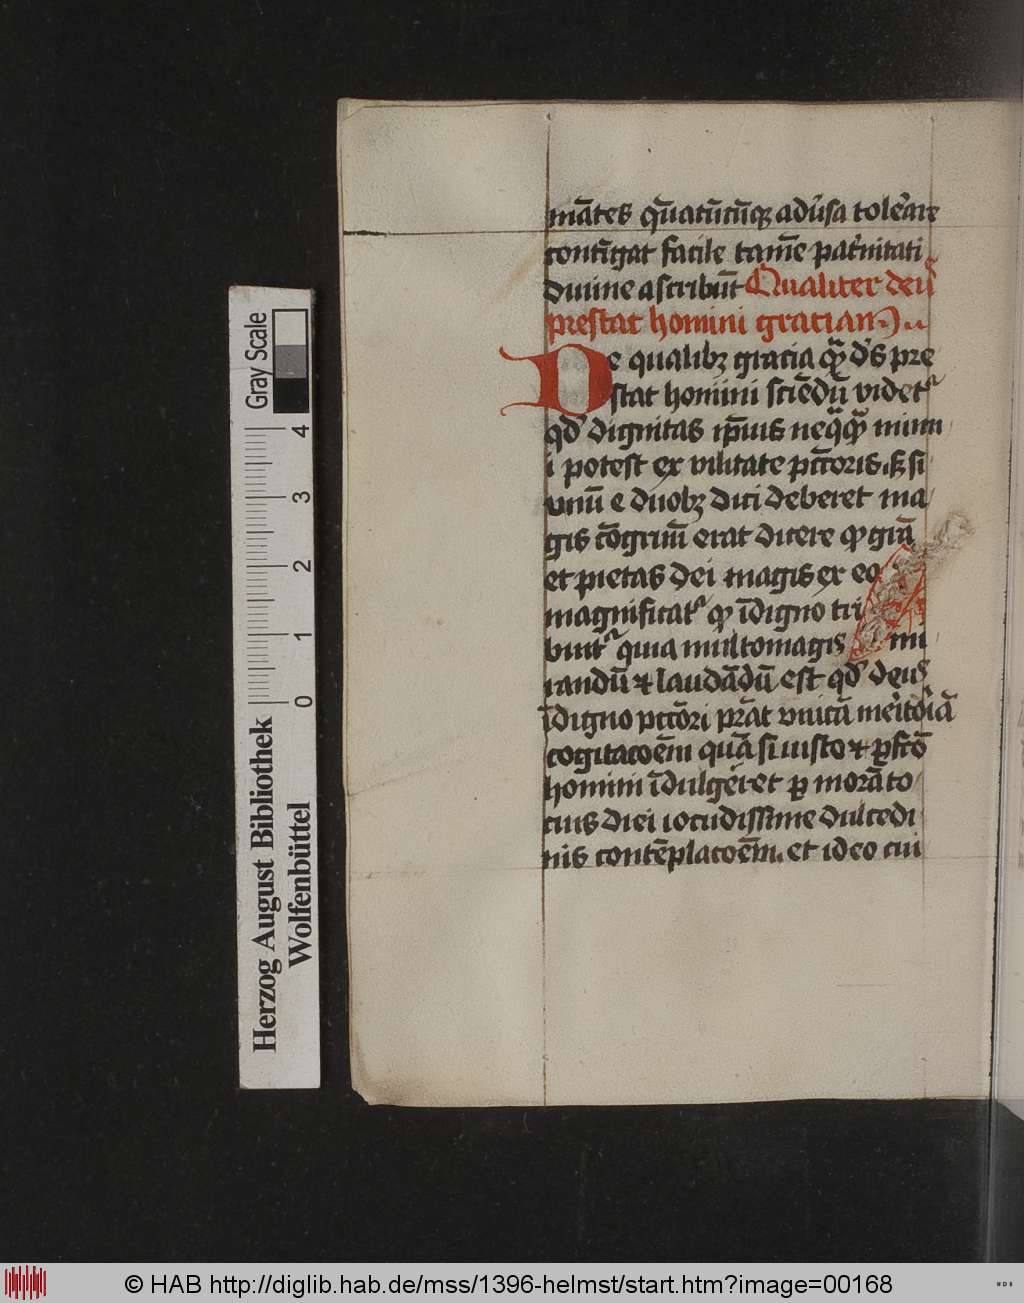 mātes qn̄atūcūqꝫ adũsa tolẽare
contīgat facile tamē pat̃nitati
diuine ascribūt Qualiter deus
prestat homini graciam
De qualibꝫ gracia qm̄ dꝰs pre
stat homini sciēdū videtᷣ
qd̾ dignitas ip̄ius neq̄q̄ minu
i potest ex vilitate pctōris ꝫ si
vnū e duobꝫ dici deberet ma
gis cōgruū erat dicere qꝫ grā
et pietas dei magis ex eo
magnificatᷣ qꝫ īdigno tri
buitᷣ quia multomagis mi
randū ⁊ laudādū est qd̾ deus
īdigno pctōri prāt vnicā meritoīā
cogitacoēm quā si iusto ⁊ ꝑfcō
homini īdulgeret ꝑ morā to
cius diei iocudissime dulcedi
nis contēplacoēm. et ideo cui
Gray Scale
4
3
2
1
0
Herzog August Bibliothek
Wolfenbüttel
© HAB http://diglib.hab.de/mss/1396-helmst/start.htm?image=00168